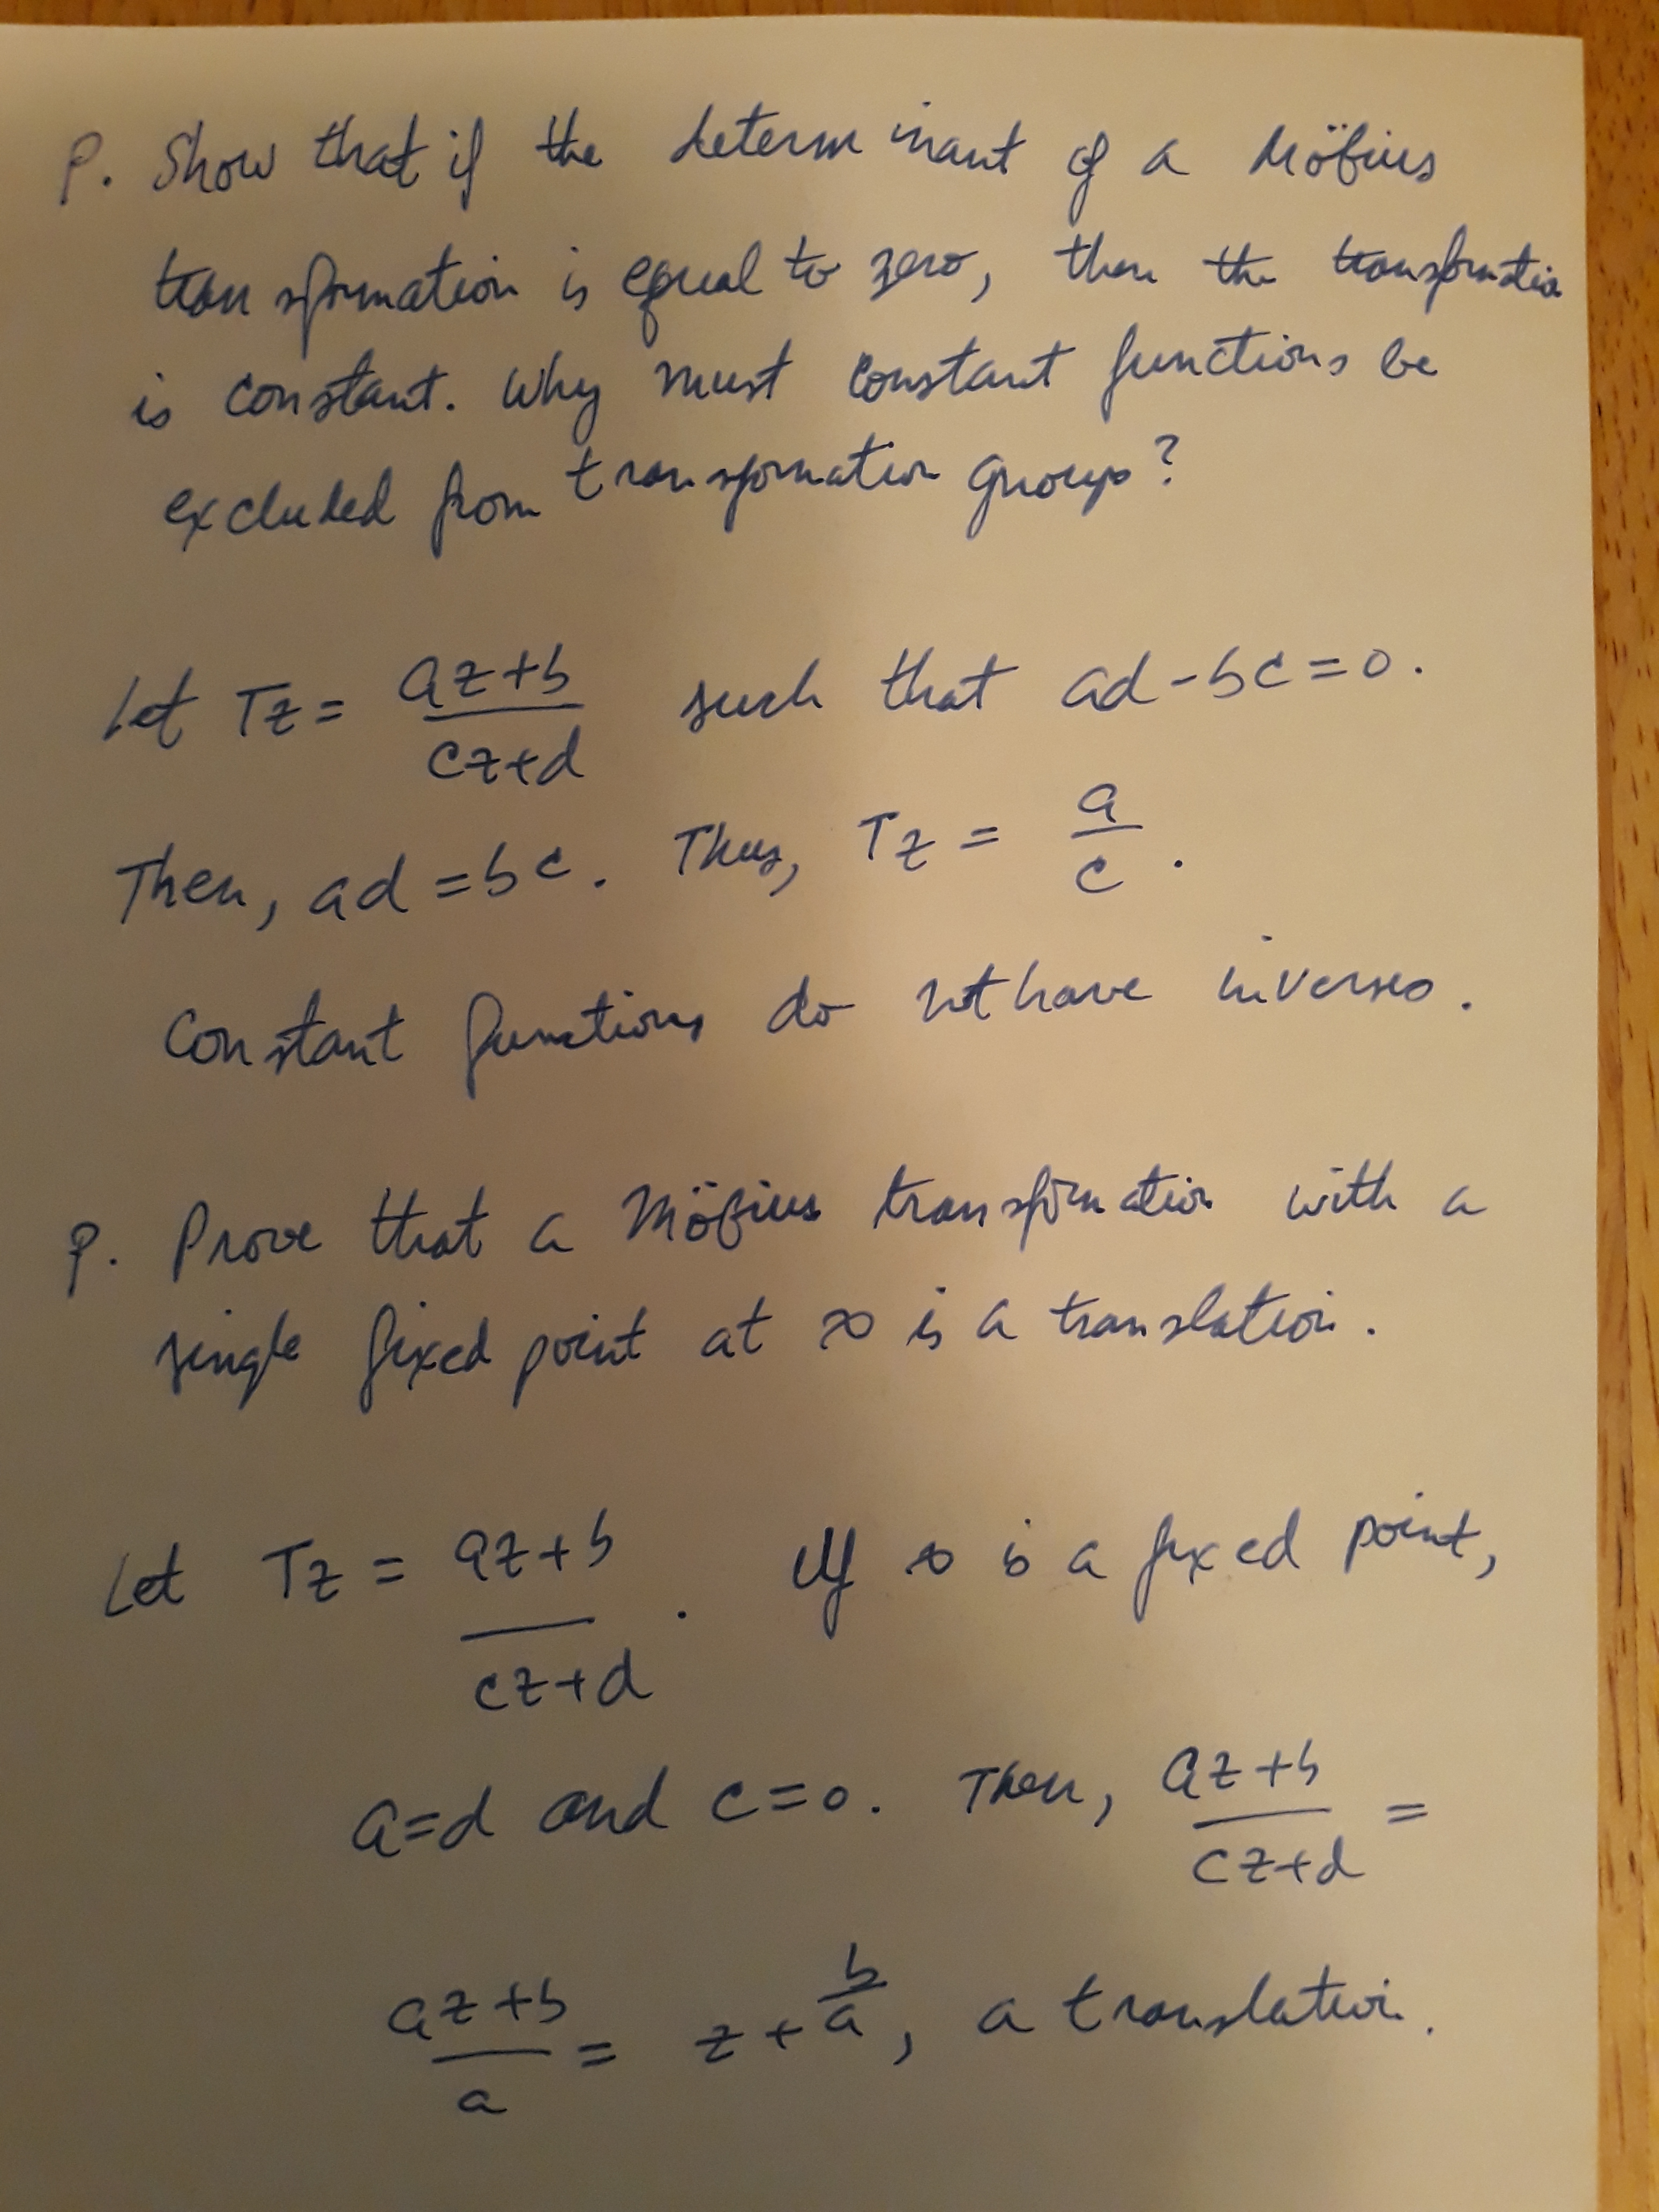 P. Show that if the determinant of a Möbius
transformation is equal to zero, then the transformation
is constant. Why must constant functions be
excluded from transformation groups?
Let Tz = (az+b)/(cz+d) such that ad-bc=0.
Then, ad=bc. Thus, Tz = a/c.
Constant functions do not have inverses.
P. Prove that a Möbius transformation with a
single fixed point at ∞ is a translation.
Let Tz = (az+b)/(cz+d). If ∞ is a fixed point,
a=d and c=0. Then, (az+b)/(cz+d) =
(az+b)/a = z+b/a, a translation.